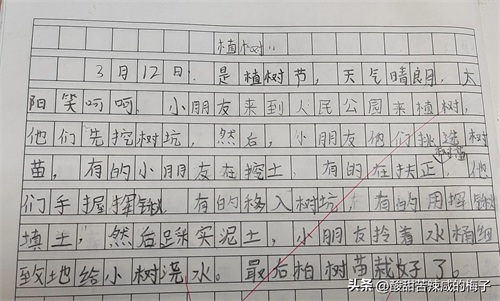 植树
3月12日，是植树节，天气晴朗，太
阳笑呵呵，小朋友来到人民公园来植树，
他们先挖树坑，然后，小朋友他们挑选树
苗，有的小朋友在挖土，有的在扶正，他
们手握挥锹，有的移入树坑，有的用挥锹
填土，然后踩实泥土，小朋友拎着水桶细
致地给小树浇水。最后柏树苗栽好了。
头条 @酸甜苦辣咸的梅子